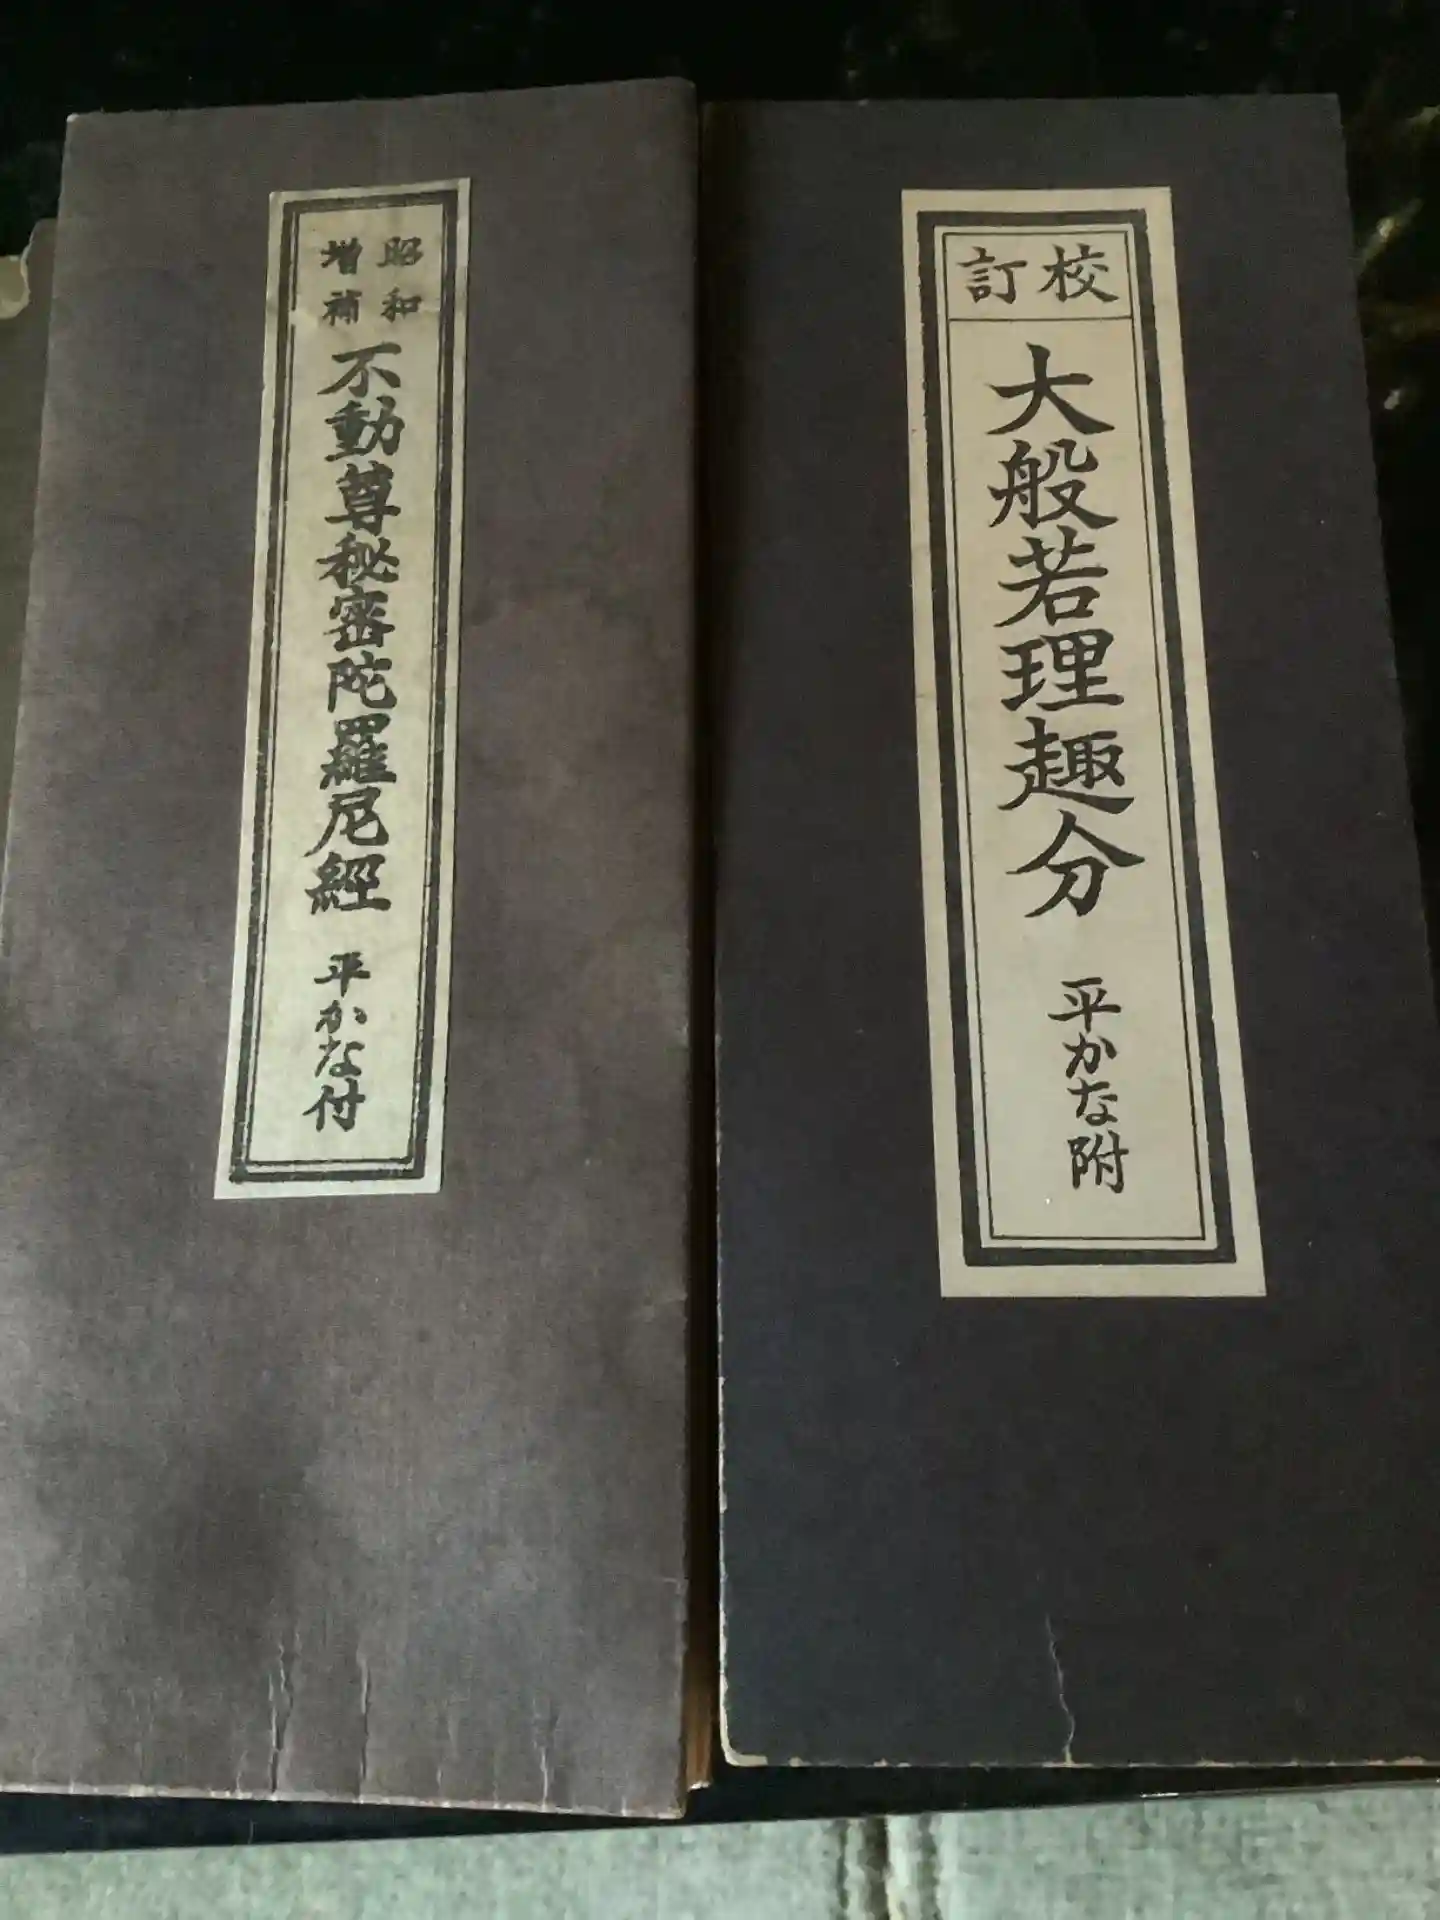 校訂
大般若理趣分 平かな附
昭和
増補
不動尊秘密陀羅尼經 平かな付